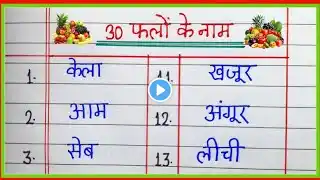 30 फलों के नाम
1. केला 11. खजूर
2. आम 12. अंगूर
3. सेब 13. लीची